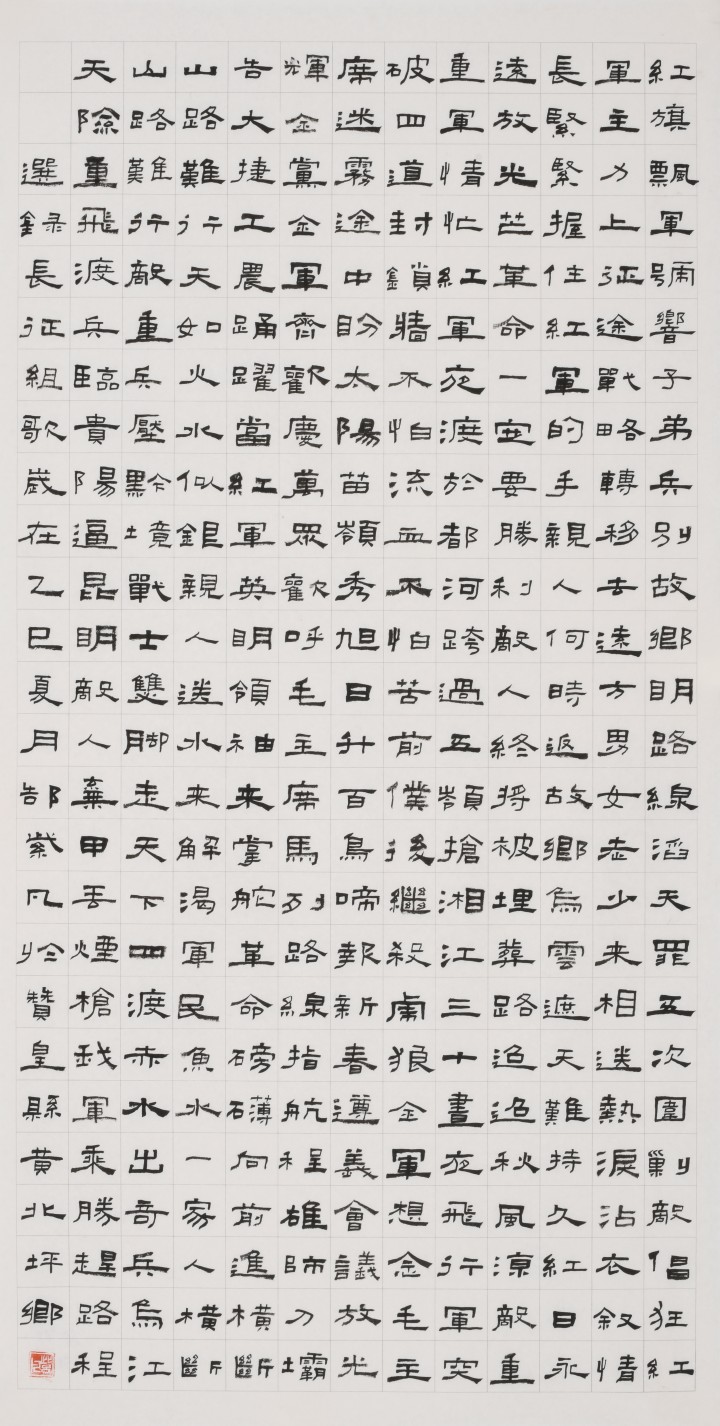 紅旗飄軍號響子弟兵別故鄉明路線滔天罪五次圍剿敵倡狂紅
軍主力上征途戰略轉移去遠方男女老少来相送熱淚沾衣叙情
長緊緊握住紅軍的手親人何時返故鄉烏雲遮天難持久紅日永
遠放光芒革命一定要勝利敵人終將被埋葬路迢迢秋風凉敵重
重軍情忙紅軍夜渡於都河跨過五嶺搶湘江三十晝夜飛行軍突
破四道封鎖墻不怕流血不怕苦前僕後繼殺虜狼金軍想念毛主
席迷霧途中盼太陽苗嶺秀旭日升百鳥啼報新春遵義會議放光
輝金黨金軍齊歡慶萬眾歡呼毛主席馬列路線指航程雄師刀壩
告大捷工農踴躍當紅軍英明領袖来掌舵革命磅礴向前進橫斷
山路難行天如火水似銀親人送水来解渴軍民魚水一家人橫斷
山路難行敵重兵壓黔境戰士雙脚走天下四渡赤水出奇兵烏江
天險重飛渡兵臨貴陽逼昆明敵人棄甲丟煙槍我軍乘勝趕路程
選錄長征組歌歲在乙巳夏月郜紫凡於贊皇縣黄北坪鄉